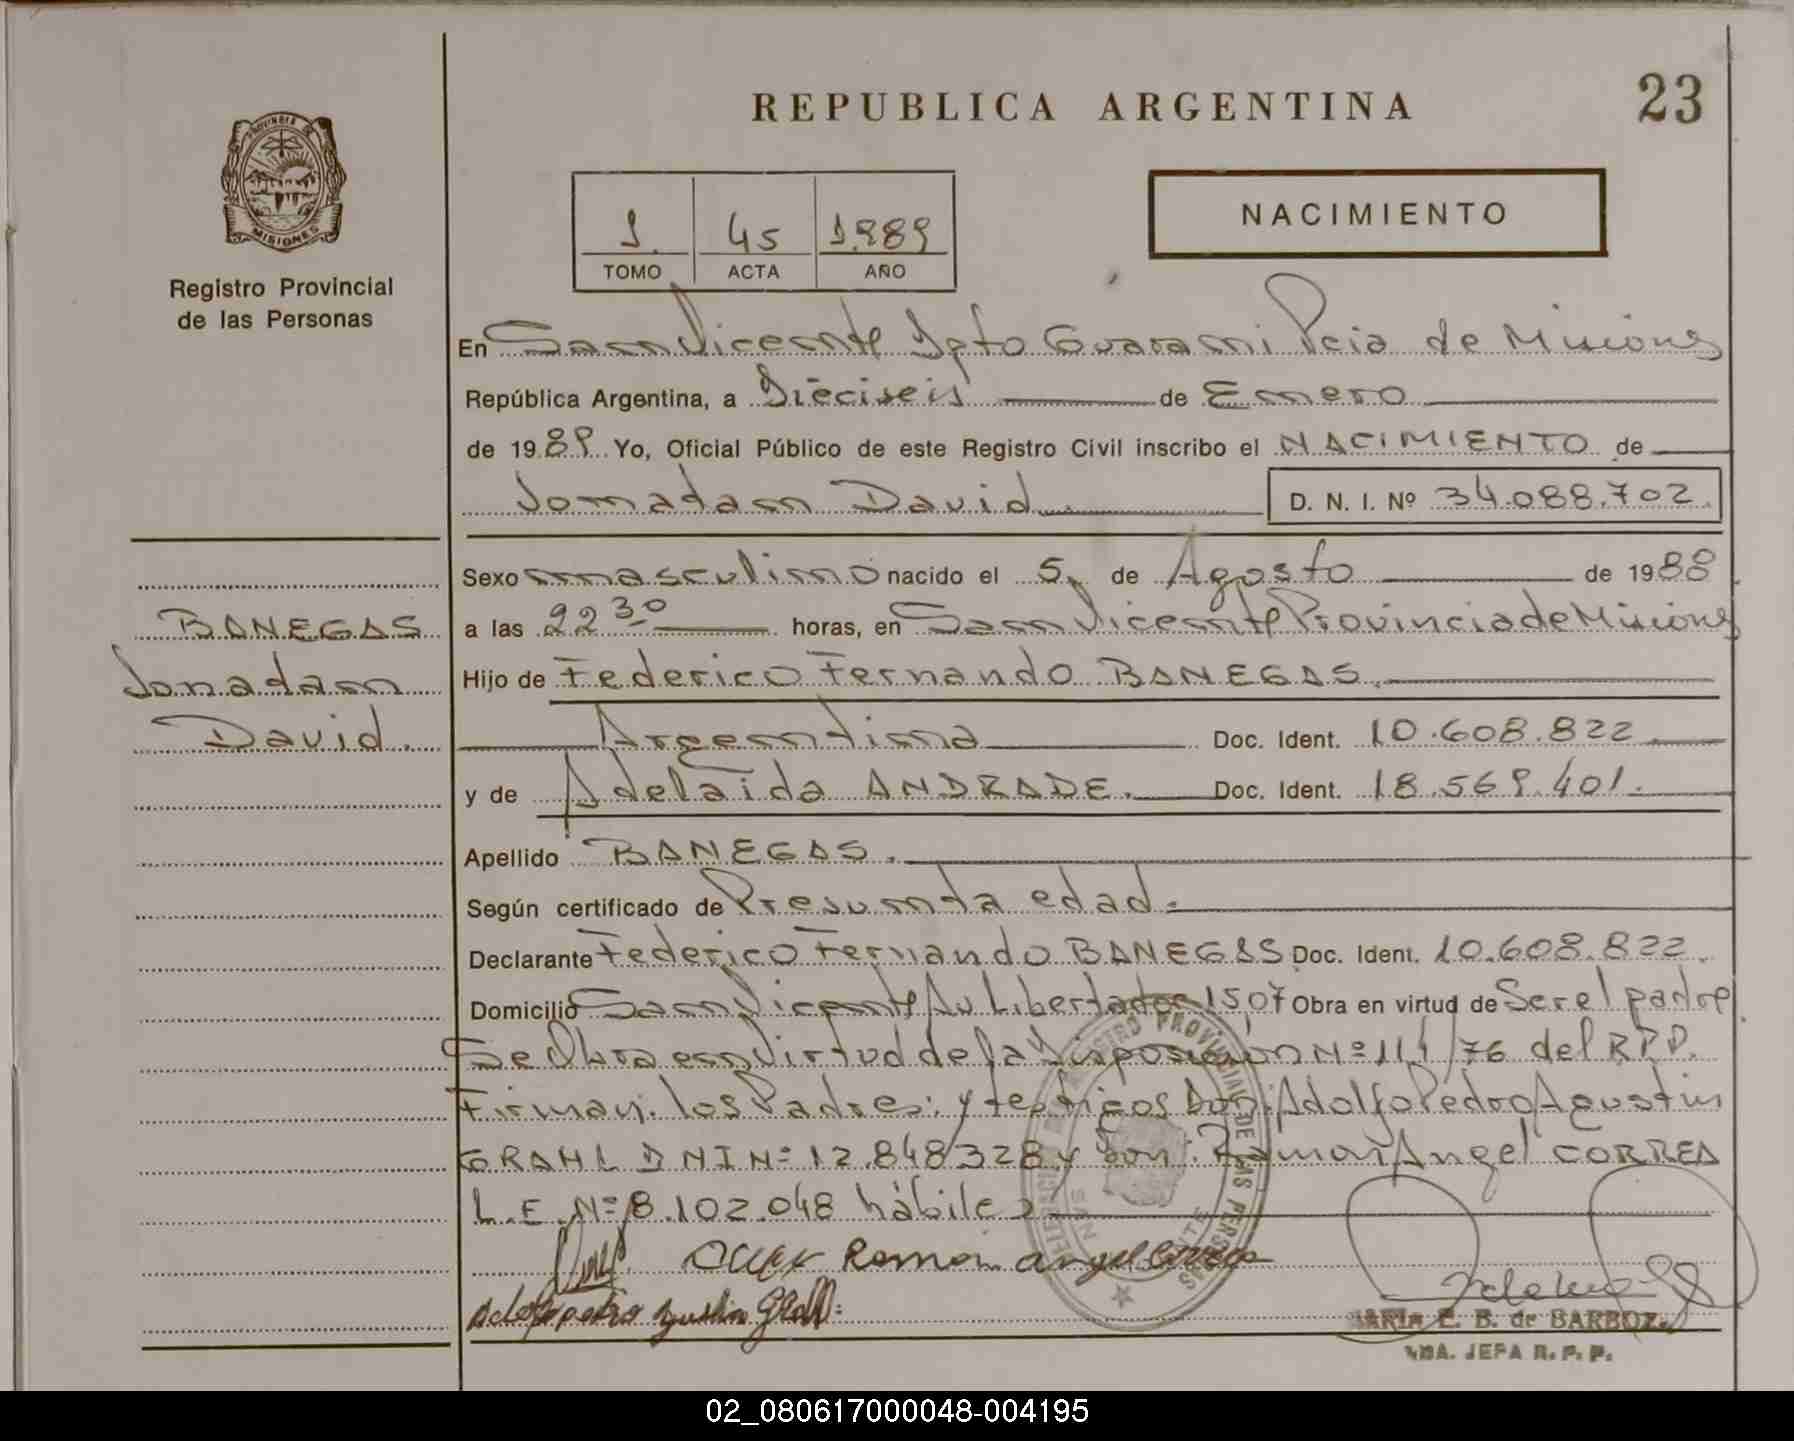 REPUBLICA ARGENTINA
23
PROVINCIA DE
MISIONES
Registro Provincial
de las Personas
1. 45 1.989
TOMO ACTA AÑO
NACIMIENTO
En San Vicente Dpto Guarani Pcia de Misiones
República Argentina, a Dieciseis de Enero
de 1989 Yo, Oficial Público de este Registro Civil inscribo el NACIMIENTO de
Jonadan David D. N. I. Nº 34.088.702.
Sexo masculino nacido el 5, de Agosto de 1988
a las 22 30 horas, en San Vicente Provincia de Misiones
Hijo de Federico Fernando BANEGAS.
Argentina Doc. Ident. 10.608.822
y de Adelaida ANDRADE. Doc. Ident. 18.569.401.
Apellido BANEGAS.
Según certificado de Presunta edad.
Declarante Federico Fernando BANEGAS Doc. Ident. 10.608.822.
Domicilio San Vicente Av Libertador 1507 Obra en virtud de Ser el padre
Se Obra en Virtud de la Disposicion Nº 114/76 del R.P.P.
Firman. los Padres: y testigos Don: Adolfo Pedro Agustin
GRAHL DNI Nº 12.848328 y Don: Ramon Angel CORREA
L.E. Nº 8.102.048 hábiles
BANEGAS
Jonadan
David.
Ramon angel Correa
REGISTRO PROVINCIAL DE LAS PERSONAS
SAN VICENTE
MARIA E. B. de BARBOZA
JEFA R. P. P.
02_080617000048-004195